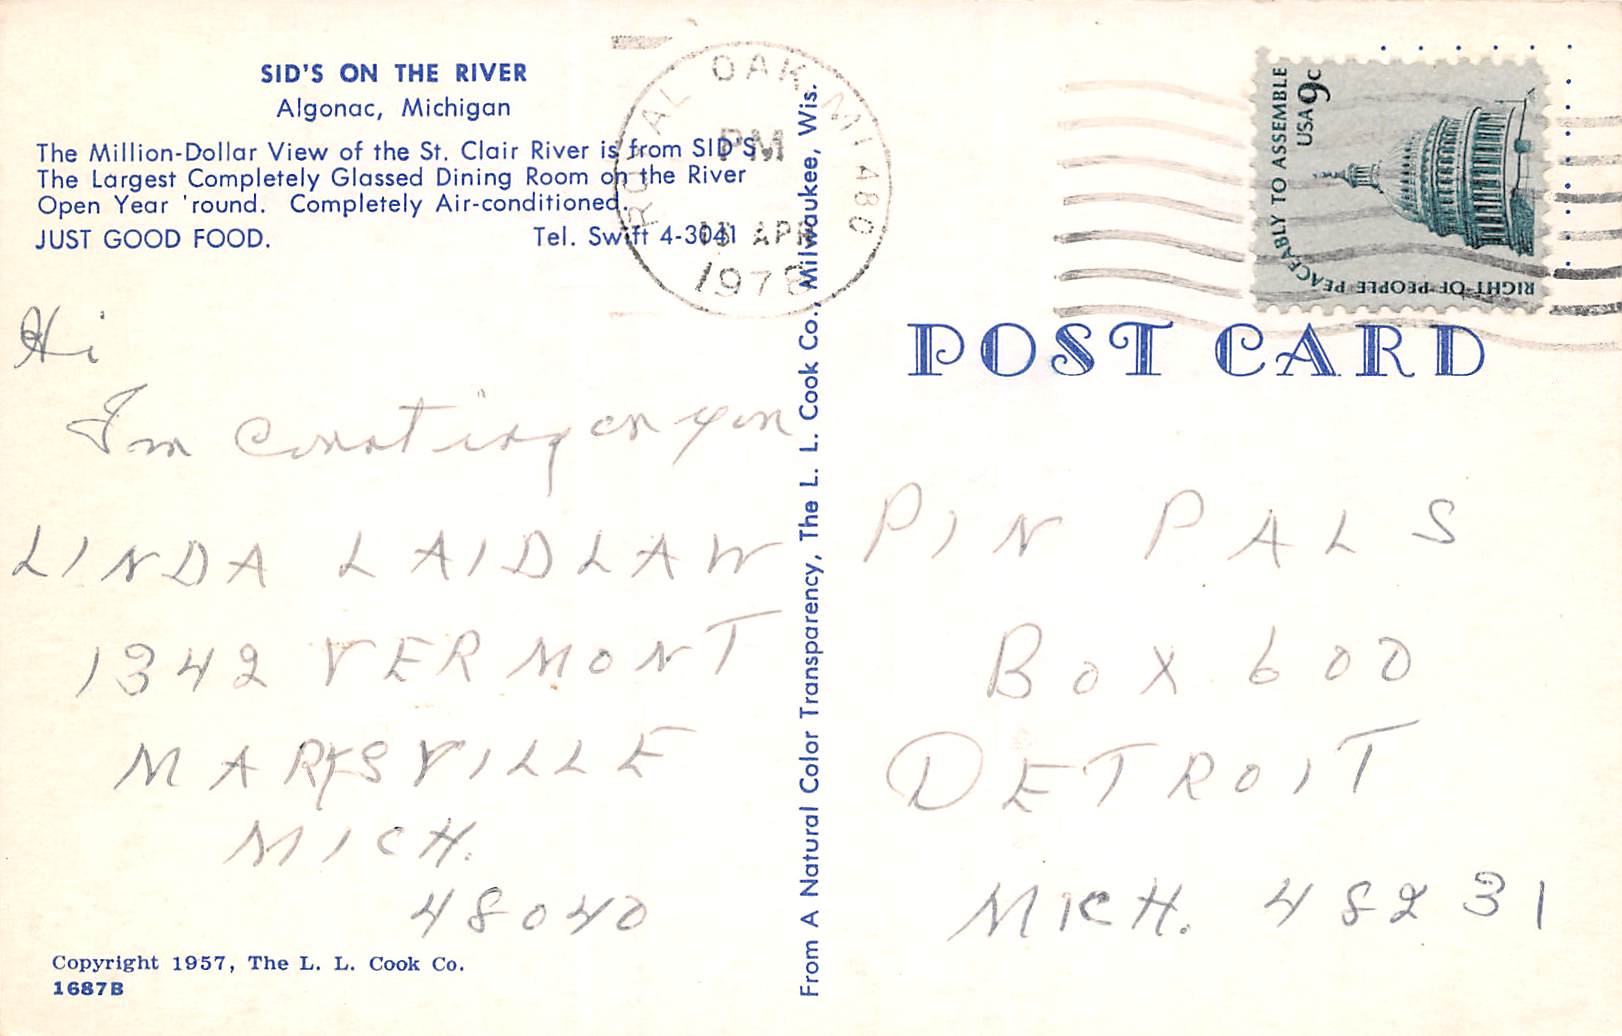 SID'S ON THE RIVER
Algonac, Michigan
The Million-Dollar View of the St. Clair River is from SID'S.
The Largest Completely Glassed Dining Room on the River
Open Year 'round. Completely Air-conditioned.
JUST GOOD FOOD. Tel. Swift 4-3041
ROYAL OAK MI 480
PM
APR
1978
Hi
I'm counting on you
LINDA LAIDLAW
1342 VERMONT
MARYSVILLE
MICH.
48040
Copyright 1957, The L. L. Cook Co.
1687B
From A Natural Color Transparency, The L. L. Cook Co., Milwaukee, Wis.
RIGHT OF PEOPLE PEACEABLY TO ASSEMBLE
USA 9c
POST CARD
PIN PALS
BOX 600
DETROIT
MICH. 48231